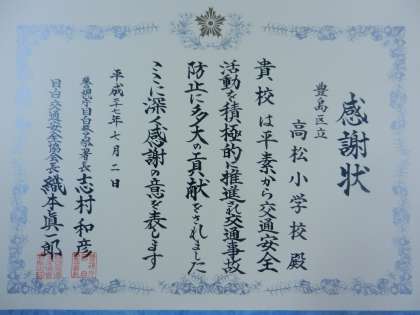 感謝状
豊島区立
高松小学校殿
貴校は平素から交通安全
活動を積極的に推進され交通事故
防止に多大の貢献をされました
ここに深く感謝の意を表します
平成二十七年七月二日
警視庁目白警察署長 志村和彦
目白交通安全協会長 織本眞一郎